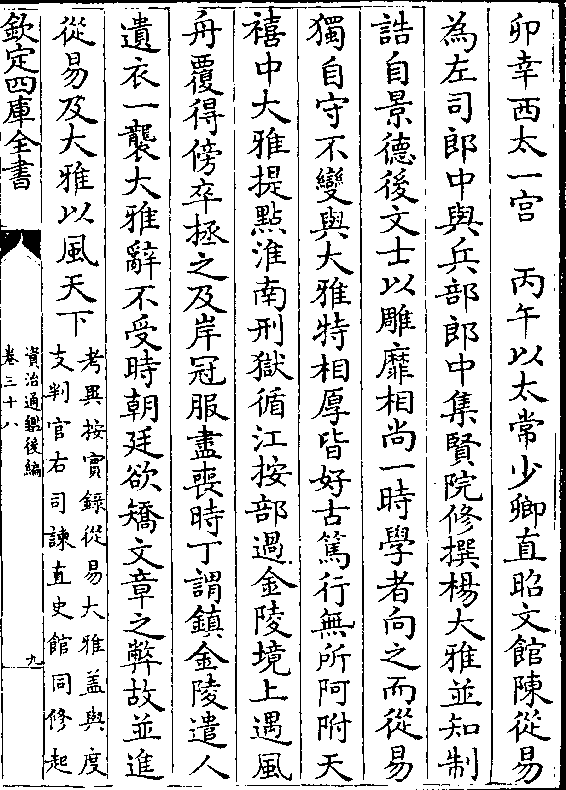 卯幸西太一宫　丙午以太常少卿直昭文館陳從易
為左司郎中與兵部郎中集賢院修撰楊大雅並知制
誥自景德後文士以雕靡相尚一時學者向之而從易
獨自守不變與大雅特相厚皆好古篤行無所阿附天
禧中大雅提點淮南刑獄循江按部過金陵境上遇風
舟覆得傍卒拯之及岸冠服盡喪時丁謂鎮金陵遣人
遺衣一襲大雅辭不受時朝廷欲矯文章之弊故並進
從易及大雅以風天下
考異按實錄從易大雅盖與度
支判官右司諫直史館同修起
欽定四庫全書
資治通鑑後編
卷三十八
九